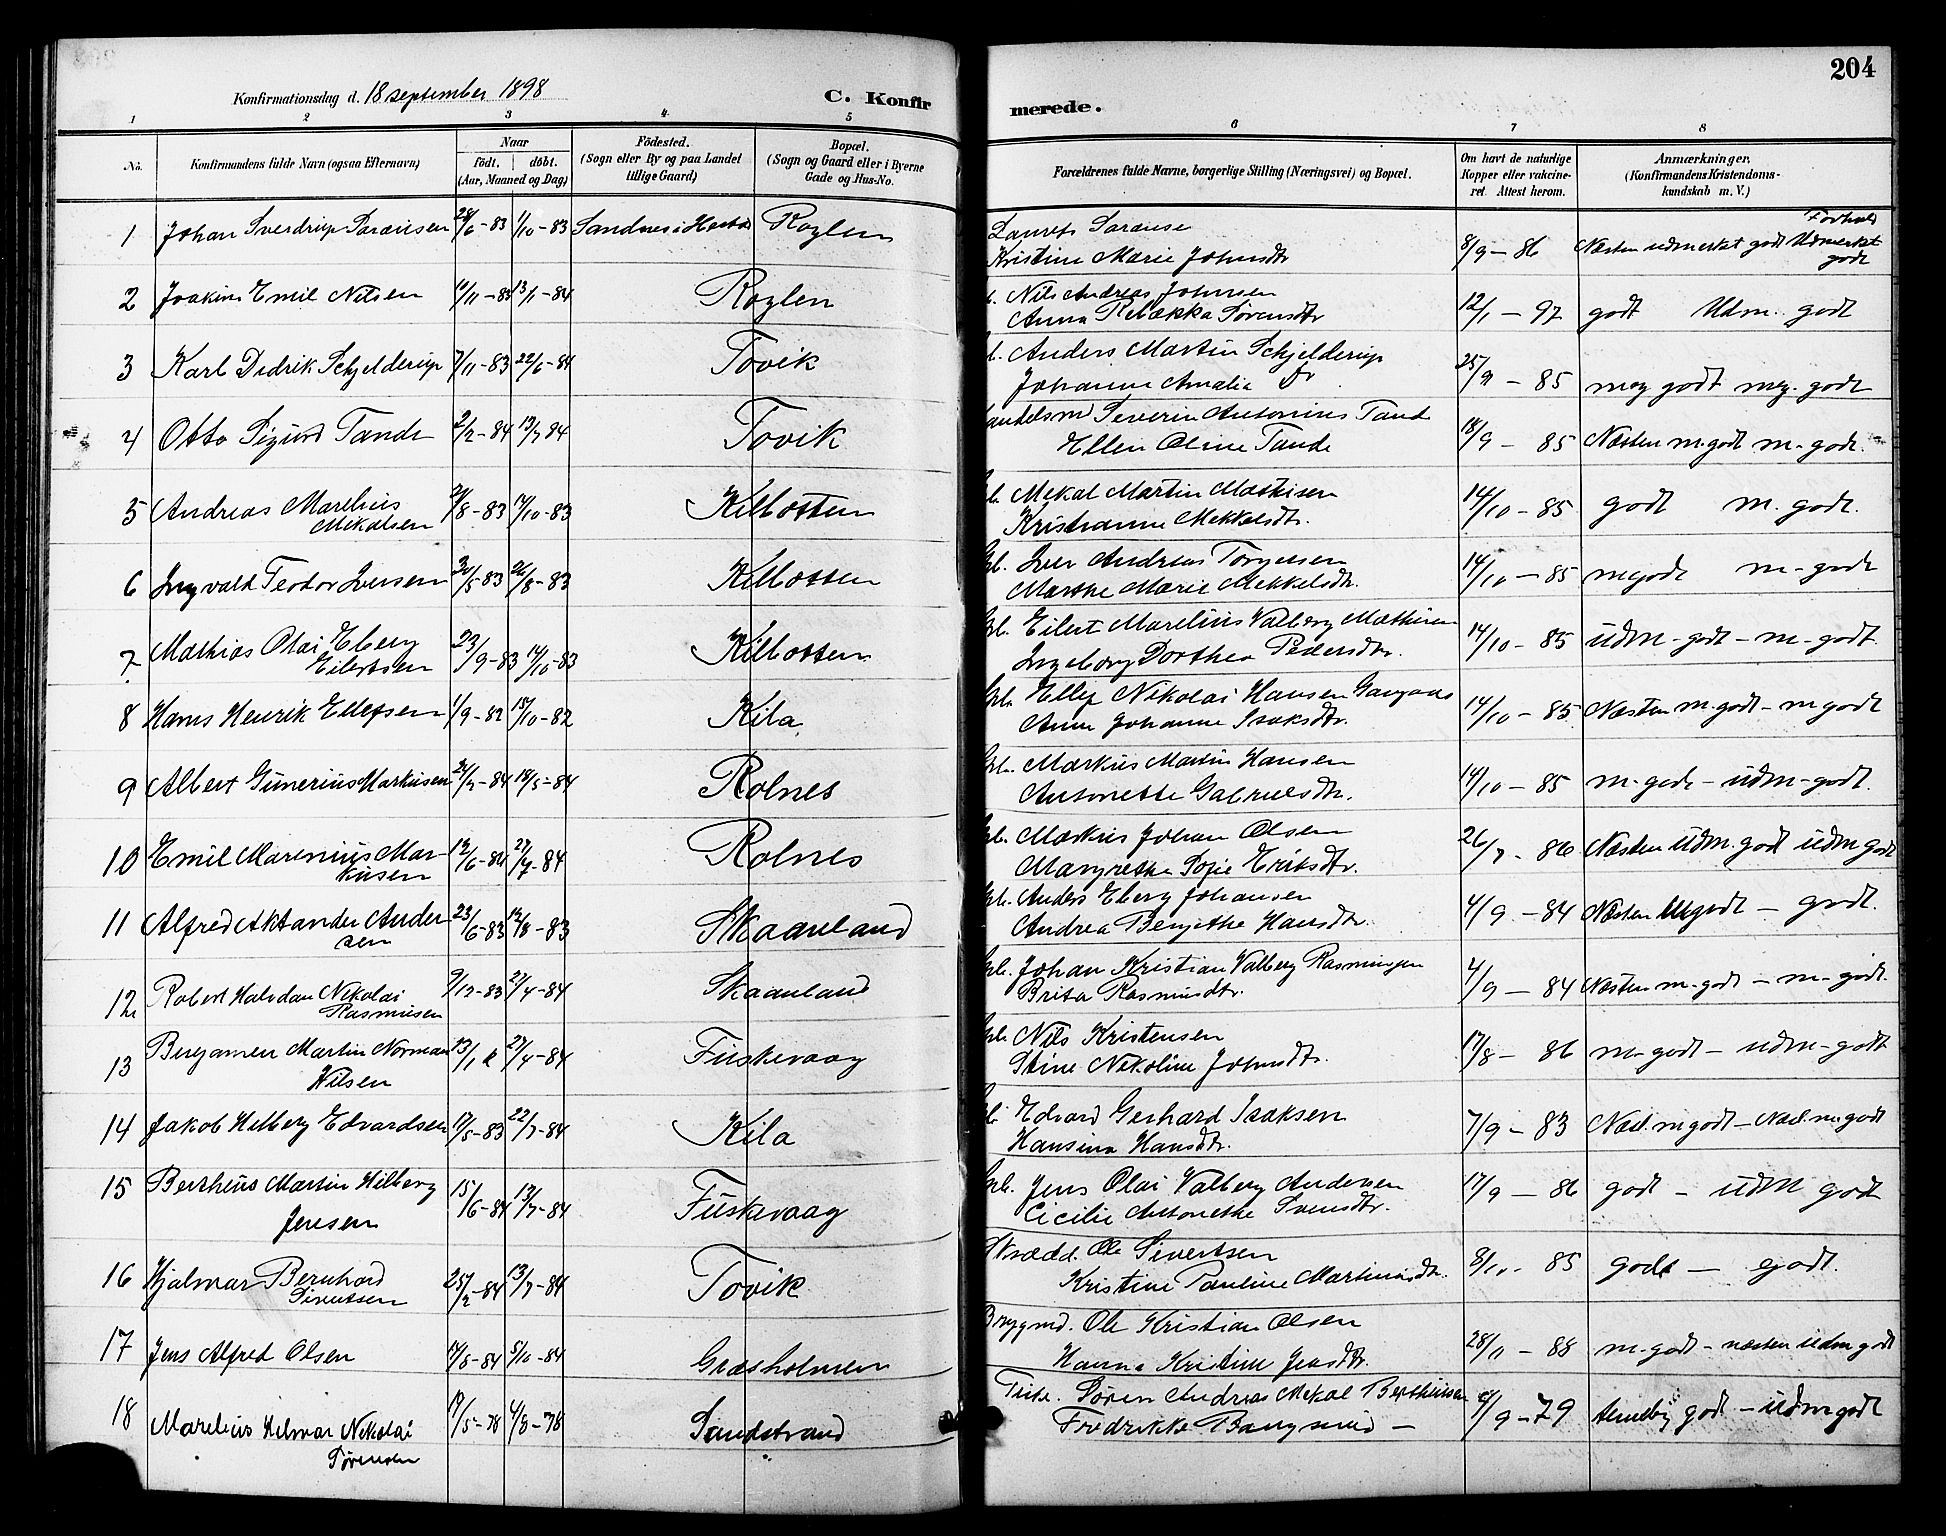 204
Konfirmationsdag d. 18 september 1898
C. Konfirmerede.
1 2 3 4 5 6 7 8
No. Konfirmandens fulde Navn (ogsaa Efternavn) Naar født. døbt. (Aar, Maaned og Dag) Fødested. (Sogn eller By og paa Landet tillige Gaard) Bopæl. (Sogn og Gaard eller i Byerne Gade og Hus-No. Forældrenes fulde Navne, borgerlige Stilling (Næringsvei) og Bopæl. Om havt de naturlige Kopper eller vakcineret. Attest herom. Anmærkninger. (Konfirmandens Kristendomskundskab m. V.)
1 Johan Sverdrup Sørensen 28/6-83 1/10-83 Sandnes i Roglen
Laurets Kristine Marie Johnsdtr 8/9-86 Næsten udmerket godt Forhold Udmerket godt
2 Joakim Emil Nilsen 11/11-83 13/1-84 Roglen
Nils Andreas Johnsen Anna Rebækka Sørensdtr 12/1-97 godt Udm. godt
3 Karl Didrik Schjelderup 7/11-83 22/6-84 Tovik
Anders Martin Schjelderup Johanne Amalia Do 25/9-85 meg godt meg. godt
4 Otto Sigurd Tande 2/2-84 13/7 84 Tovik
Handelsm Severin Antonius Tand Ellen Oline Tande 18/9-85 Næsten m.godt m-godt.
5 Andreas Marelius Mikalsen /8-83 14/10-83 Kilbotten
Mekal Martin Mathisen Kristianne Mekkelsdtr. 14/10-85 godt m. godt.
6 Ingvald Teodor Iversen /5-83 26/8-83 Kilbotten
Gb. Iver Andreas Torgersen Marthe Marie Mekkelsdtr. 14/10-85 mgodt m-godt
7 Mathias Olai Eberg Eilertsen 23/9-83 14/10-83 Kilbotten
Gb. Eilert Marelius Valberg Mathisen Ingeborg Dorthea Pedersdtr. 14/10-85 udm-godt-m-godt
8 Hans Henrik Ellefsen 1/9-82 15/10-82 Kila
Gb. Ellef Nikolai Hansen Anne Johanne Isaksdtr. 14/10-85 Næsten m.godt-m godt
9 Albert Gunerius Markusen 24/2-84 18/5-84 Rolnes
Gb. Markus Martin Hansen Antonette Gabrielsdtr. 14/10-85 m-godt-udm-godt.
10 Emil Marenius Markusen 12/6-84 27/7-84 Rolnes
Gb. Markus Johan Olsen Margrethe Sofie Eriksdtr. 26/7-86 Næsten udm.godt udm godt
11 Alfred Aksander Andersen 23/6-83 12/8-83 Skaanland
Gb. Anders Eberg Johansen Andrea Bergithe Hansdtr. 4/9-84 Næsten mgodt-godt.
12 Robert Halvdan Nikolai Rasmusen 9/12-83 27/4-84 Skaanland
Gb. Johan Kristian Valberg Rasmusen Brita Rasmusdtr. 4/9-84 Næsten m-godt-m-godt.
13 Benjamen Martin Norman Nilsen 13/1 27/4-84 Fuskevaag
Gb. Nils Kristensen Stine Nekoline Johnsdtr. 17/8-86 m-godt-udm-godt
14 Jakob Hilberg Edvardsen 17/8-83 22/7-84 Kila
Edvard Gerhard Isaksen Hansina Hansdtr. 7/9-83 Næst.mgodt-Næst.m.godt
15 Bertheus Martin Hilberg Jensen 15/6-84 13/7-84 Fuskevaag
Gb. Jens Olai Valberg Andersen Cicilie Antonethe Svensdtr. 17/9-86 godt-udm godt
16 Hjalmar Bernhard Sivertsen 25/2-84 13/7-84 Tovik
Skrædd. Ole Sivertsen Kristine Pauline Martinusdtr. 8/10-85 godt-godt.
17 Jens Alfred Olsen 14/8-84 5/10-84 Græsholmen
Brygmd. Ole Kristian Olsen Hanna Kristine Jensdtr. 28/11-88 m-godt-næsten udm godt
18 Marelius Helmar Nikolai Sørensen 19/5-78 4/8-78 Sandstrand
Søren Andreas Mekal Bertheusen Fredrikke Bangsund- /9-79 godt-udm godt